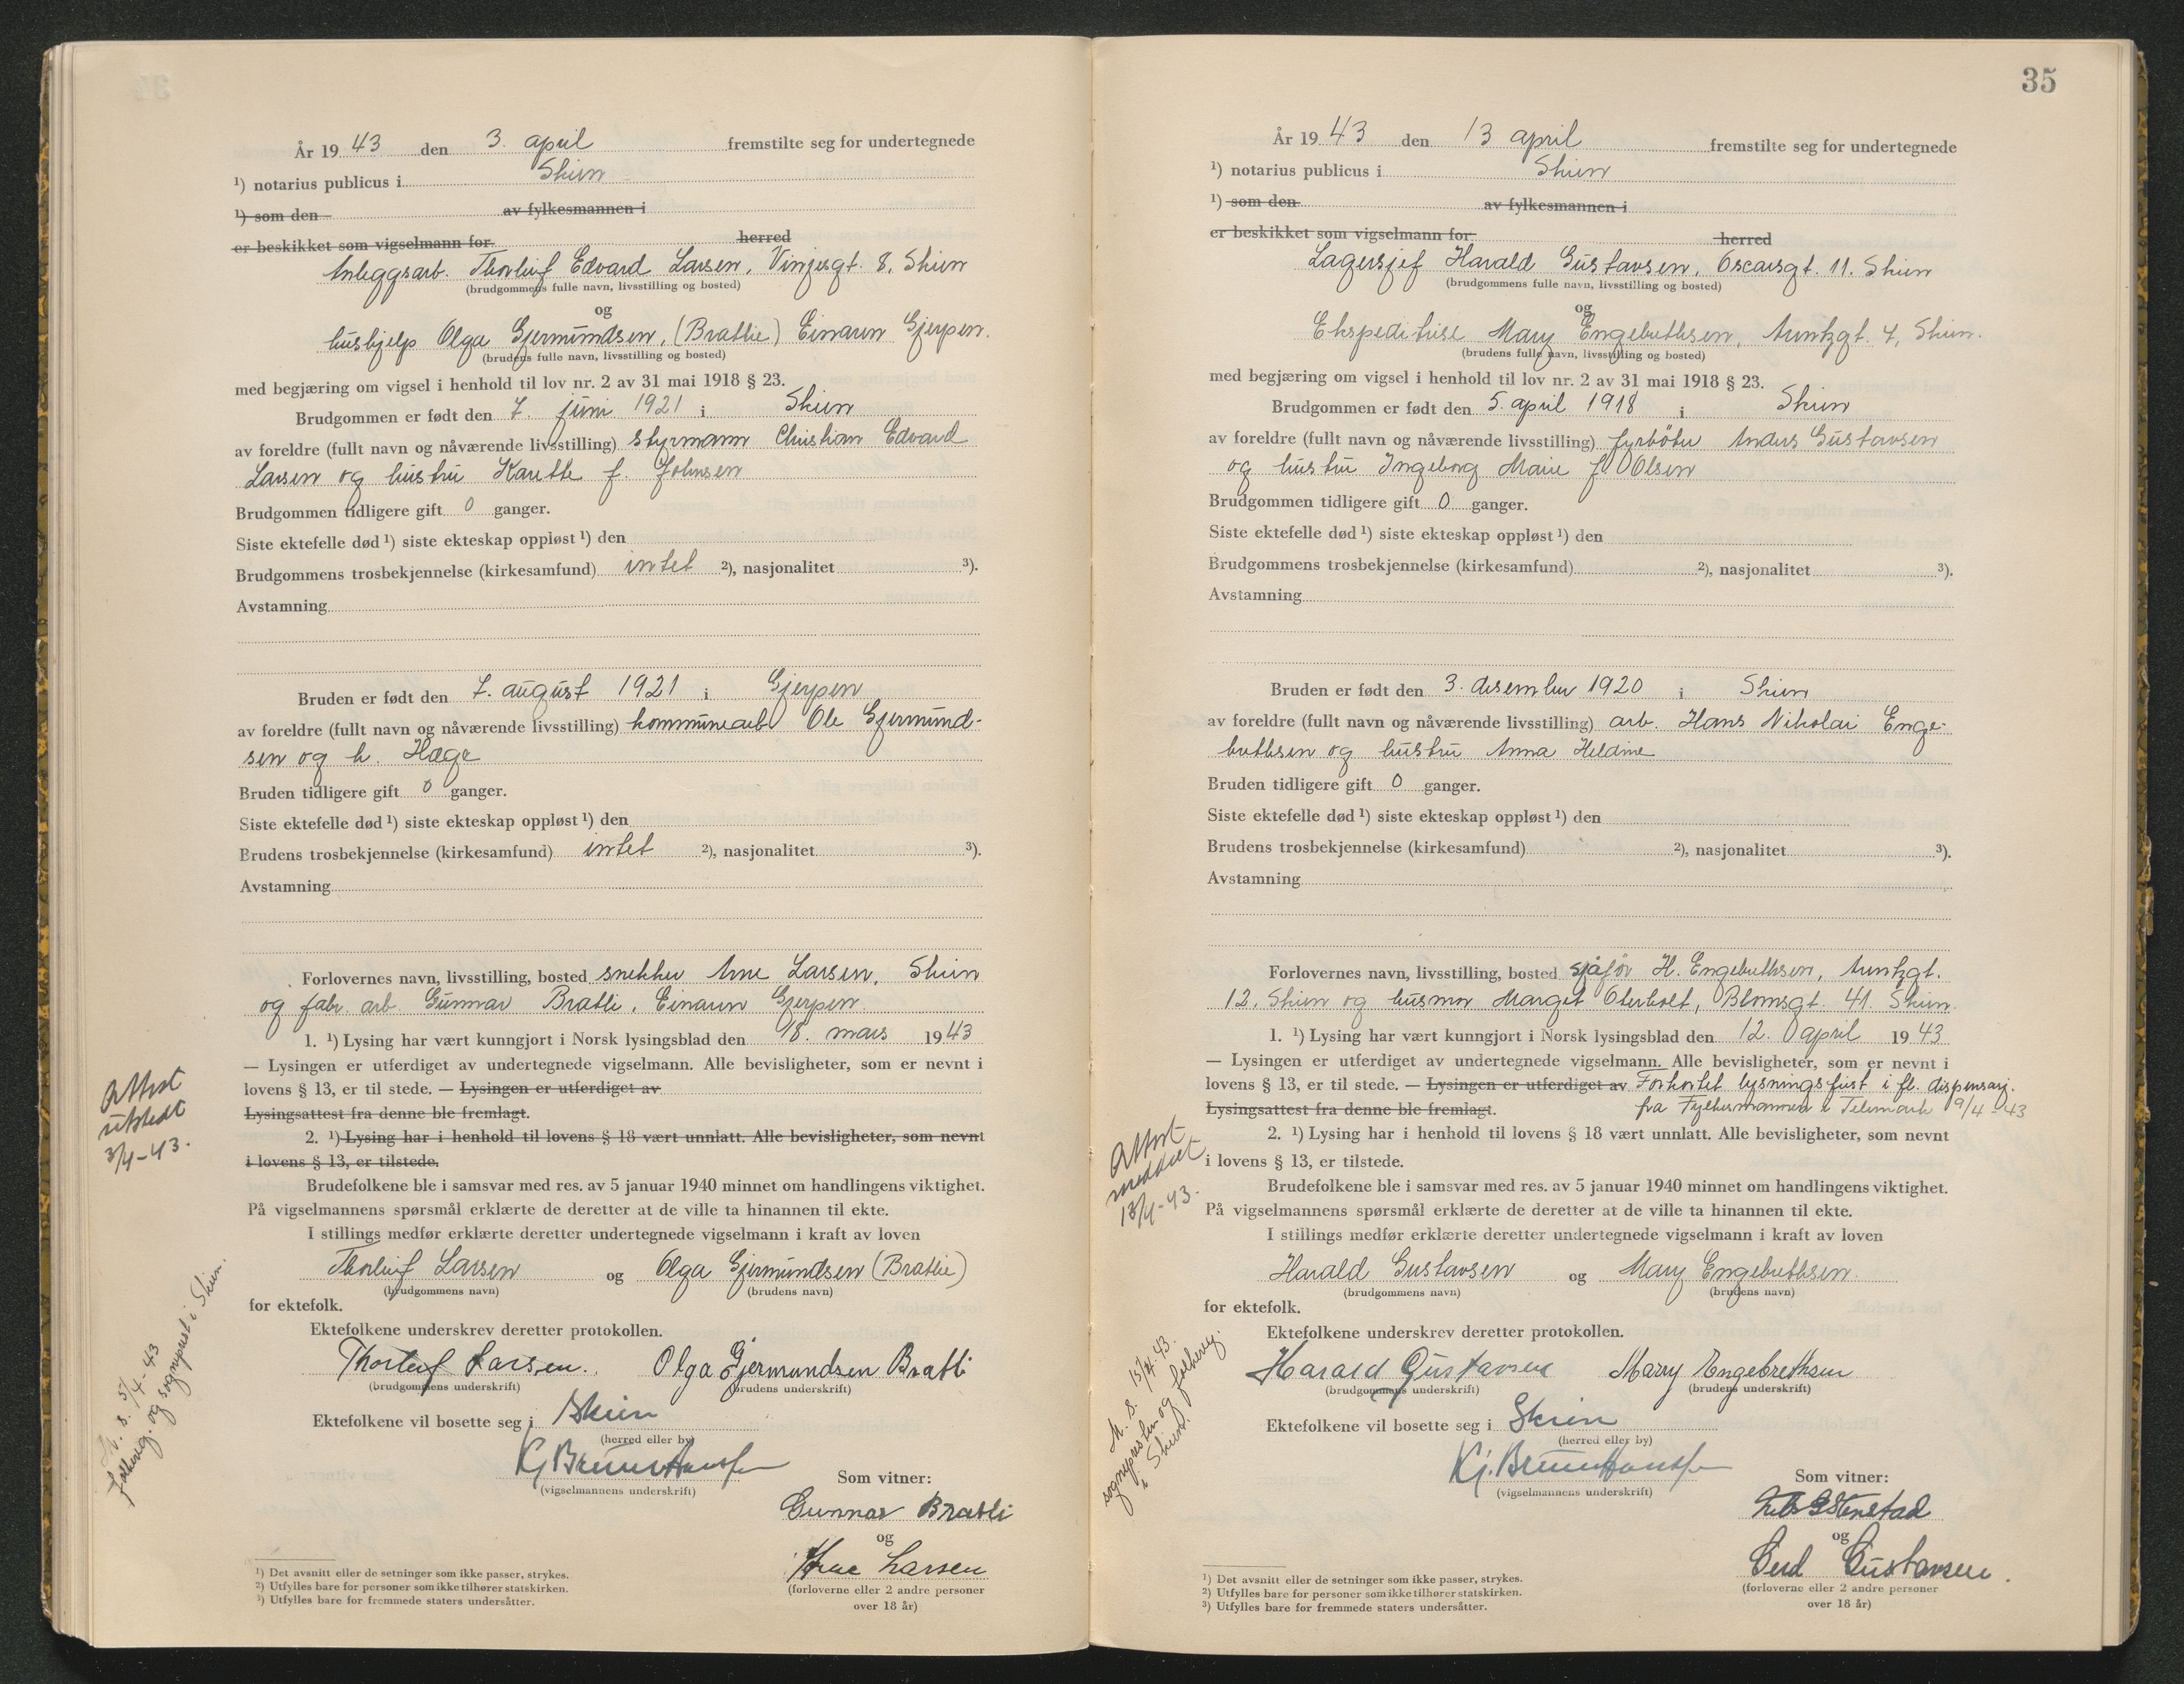 År 19 43 den 3. april fremstilte seg for undertegnede
¹) notarius publicus i Skien
¹) som den av fylkesmannen i
er beskikket som vigselmann for herred
Anleggsarb. Thorleif Edvard Larsen, Vinjesgt. 8, Skien
(brudgommens fulle navn, livsstilling og bosted)
og
hushjelp Olga Gjermundsen, (Bratlie) Einaren Gjerpen.
(brudens fulle navn, livsstilling og bosted)
med begjæring om vigsel i henhold til lov nr. 2 av 31 mai 1918 § 23.
Brudgommen er født den 7. juni 1921 i Skien
av foreldre (fullt navn og nåværende livsstilling) styrmann Christian Edvard
Larsen og hustru Karethe f. Johnsen
Brudgommen tidligere gift 0 ganger.
Siste ektefelle død ¹) siste ekteskap oppløst ¹) den
Brudgommens trosbekjennelse (kirkesamfund) intet ²), nasjonalitet ³).
Avstamning
Bruden er født den 7. august 1921 i Gjerpen
av foreldre (fullt navn og nåværende livsstilling) kommunearb Ole Gjermund-
sen og h. Hæge
Bruden tidligere gift 0 ganger.
Siste ektefelle død ¹) siste ekteskap oppløst ¹) den
Brudens trosbekjennelse (kirkesamfund) intet ²), nasjonalitet ³).
Avstamning
Forlovernes navn, livsstilling, bosted snekker Arne Larsen, Skien
og fabr. arb. Gunnar Bratli, Einaren Gjerpen.
1. ¹) Lysing har vært kunngjort i Norsk lysingsblad den 18. mars 1943
— Lysingen er utferdiget av undertegnede vigselmann. Alle bevisligheter, som er nevnt i
lovens § 13, er til stede. — Lysingen er utferdiget av
Lysingsattest fra denne ble fremlagt.
2. ¹) Lysing har i henhold til lovens § 18 vært unnlatt. Alle bevisligheter, som nevnt
i lovens § 13, er tilstede.
Attest
utstedt
3/4-43.
Brudefolkene ble i samsvar med res. av 5 januar 1940 minnet om handlingens viktighet.
På vigselmannens spørsmål erklærte de deretter at de ville ta hinannen til ekte.
I stillings medfør erklærte deretter undertegnede vigselmann i kraft av loven
Thorleif Larsen og Olga Gjermundsen (Bratlie)
(brudgommens navn) (brudens navn)
for ektefolk.
Ektefolkene underskrev deretter protokollen.
Thorleif Larsen. Olga Gjermundsen Bratli
(brudgommens underskrift) (brudens underskrift)
M. s. 5/4-43
folkereg. og sogneprest i Skien.
Ektefolkene vil bosette seg i Skien
(herred eller by)
(vigselmannens underskrift)
Som vitner:
Gunnar Bratli
og
Arne Larsen
(forloverne eller 2 andre personer
over 18 år)
¹) Det avsnitt eller de setninger som ikke passer, strykes.
²) Utfylles bare for personer som ikke tilhører statskirken.
³) Utfylles bare for fremmede staters undersåtter.
35
År 19 43 den 13 april fremstilte seg for undertegnede
¹) notarius publicus i Skien
¹) som den av fylkesmannen i
er beskikket som vigselmann for herred
Lagersjef Harald Gustavsen, Oscarsgt. 11. Skien
(brudgommens fulle navn, livsstilling og bosted)
og
Ekspeditrise Mary Engebrethsen, Arntzgt. 4, Skien.
(brudens fulle navn, livsstilling og bosted)
med begjæring om vigsel i henhold til lov nr. 2 av 31 mai 1918 § 23.
Brudgommen er født den 5. april 1918 i Skien
av foreldre (fullt navn og nåværende livsstilling) fyrbøter Anders Gustavsen
og hustru Ingeborg Marie f. Olsen
Brudgommen tidligere gift 0 ganger.
Siste ektefelle død ¹) siste ekteskap oppløst ¹) den
Brudgommens trosbekjennelse (kirkesamfund) ²), nasjonalitet ³).
Avstamning
Bruden er født den 3. desember 1920 i Skien
av foreldre (fullt navn og nåværende livsstilling) arb. Hans Nikolai Enge-
brethsen og hustru Anna Heldine
Bruden tidligere gift 0 ganger.
Siste ektefelle død ¹) siste ekteskap oppløst ¹) den
Brudens trosbekjennelse (kirkesamfund) ²), nasjonalitet ³).
Avstamning
Forlovernes navn, livsstilling, bosted sjåför H. Engebrethsen, Arntzgt.
12, Skien og husmor Margit Oterholt, Blomsgt. 41. Skien.
1. ¹) Lysing har vært kunngjort i Norsk lysingsblad den 12. april 1943
— Lysingen er utferdiget av undertegnede vigselmann. Alle bevisligheter, som er nevnt i
lovens § 13, er til stede. — Lysingen er utferdiget av Forkortet lysningsfrist i fl. dispensasj.
Lysingsattest fra denne ble fremlagt. fra Fylkesmannen i Telemark 9/4-43
2. ¹) Lysing har i henhold til lovens § 18 vært unnlatt. Alle bevisligheter, som nevnt
i lovens § 13, er tilstede.
Attest
meddelt
13/4-43.
Brudefolkene ble i samsvar med res. av 5 januar 1940 minnet om handlingens viktighet.
På vigselmannens spørsmål erklærte de deretter at de ville ta hinannen til ekte.
I stillings medfør erklærte deretter undertegnede vigselmann i kraft av loven
Harald Gustavsen og Mary Engebrethsen.
(brudgommens navn) (brudens navn)
for ektefolk.
Ektefolkene underskrev deretter protokollen.
Harald Gustavsen Marry Engebrethsen
(brudgommens underskrift) (brudens underskrift)
M. s. 15/4-43.
sognepresten og folkereg.
i Skien.
Ektefolkene vil bosette seg i Skien
(herred eller by)
(vigselmannens underskrift)
Som vitner:
og
Gerd Gustavsen.
(forloverne eller 2 andre personer
over 18 år)
¹) Det avsnitt eller de setninger som ikke passer, strykes.
²) Utfylles bare for personer som ikke tilhører statskirken.
³) Utfylles bare for fremmede staters undersåtter.